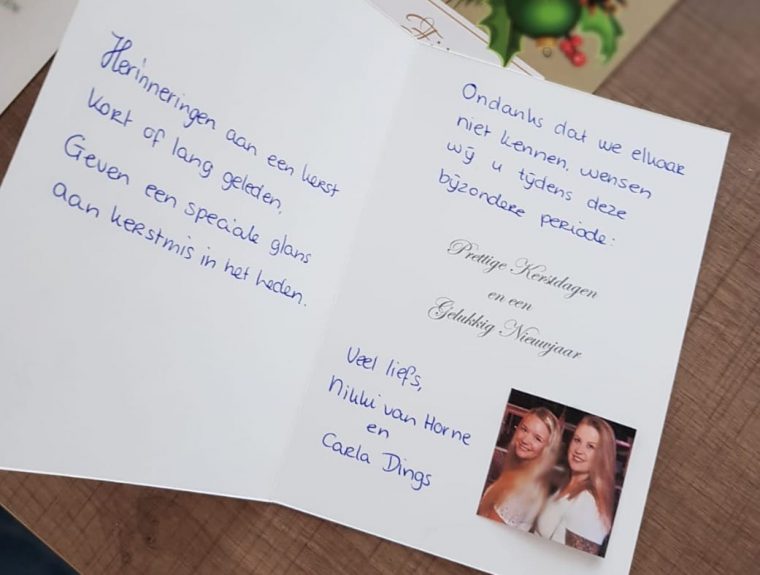 Herinneringen aan een kerst
kort of lang geleden,
Geven een speciale glans
aan kerstmis in het heden.
Ondanks dat we elkaar
niet kennen, wensen
wij u tijdens deze
bijzondere periode:
Prettige Kerstdagen
en een
Gelukkig Nieuwjaar
Veel liefs,
Nikki van Horne
en
Carla Dings